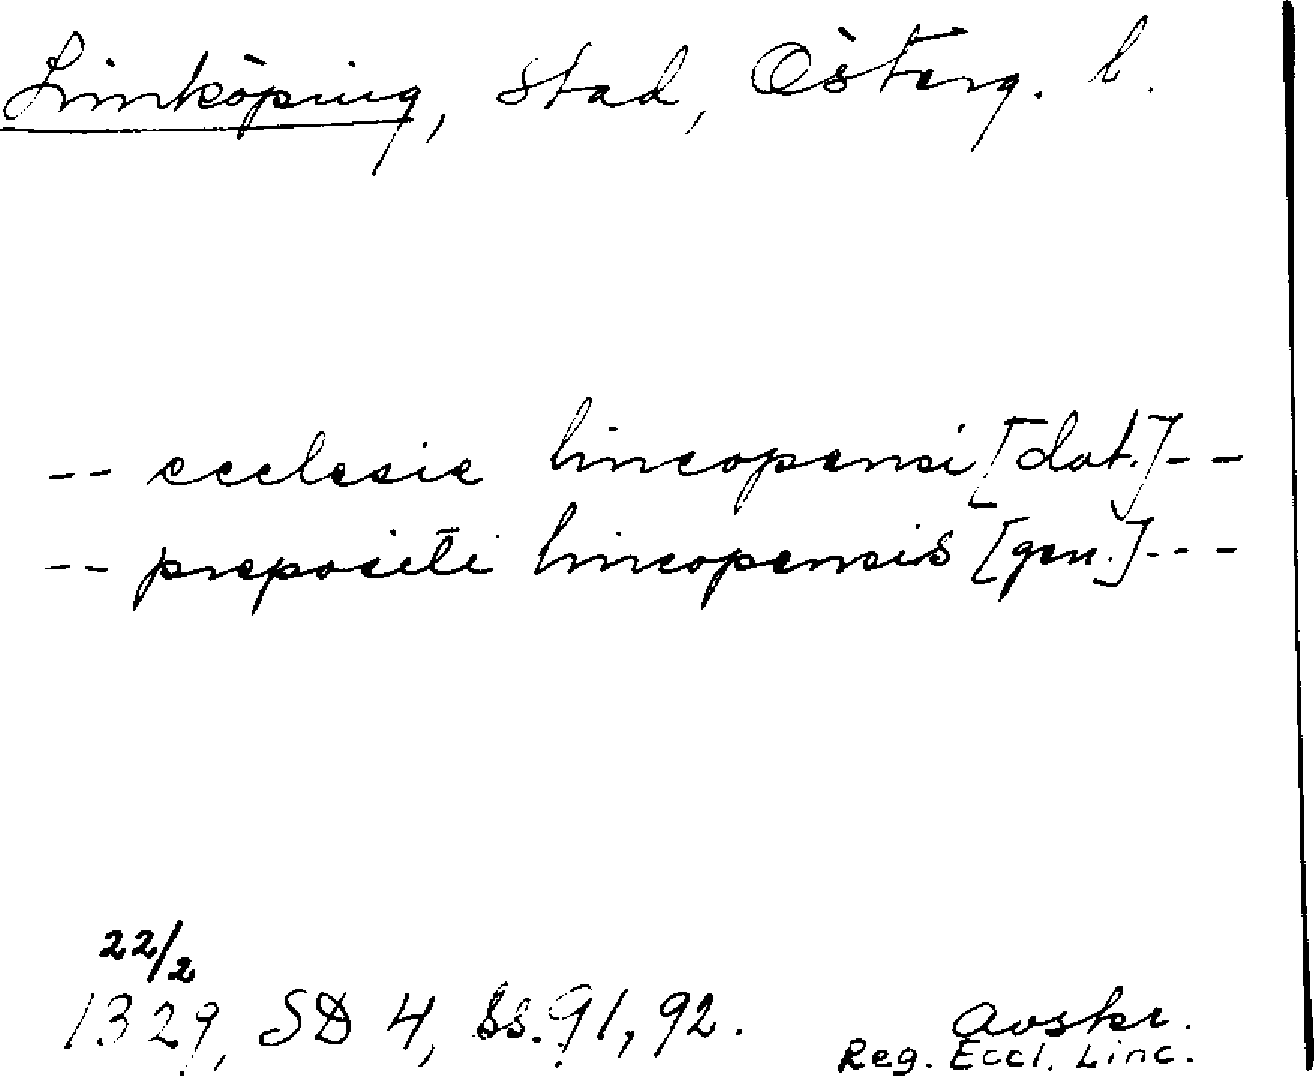 Linköping, stad, Österg. l.
-- ecclesie lincopensi [dat.] --
-- prepositi lincopensis [gen.] ---
22/2
1329, SD 4, ss. 91, 92.
Avskr.
Reg. Eccl. Linc.